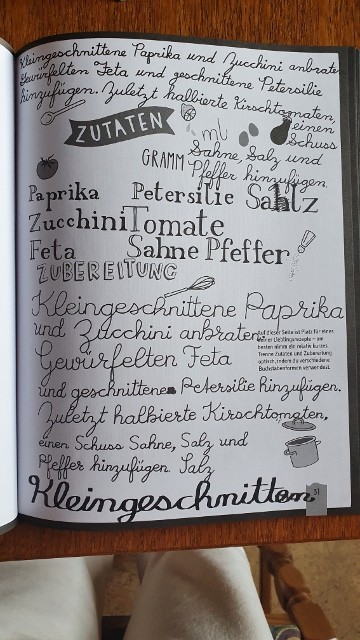 Kleingeschnittene Paprika und Zucchini anbraten
Gewürfelten Feta und geschnittene Petersilie
hinzufügen. Zuletzt halbierte Kirschtomaten,
einen
Schuss
ZUTATEN
ml
Sahne, Salz und
GRAMM
Pfeffer hinzufügen.
Paprika Petersilie Sahtz
Zucchini Tomate
Feta Sahne Pfeffer
ZUBEREITUNG
Kleingeschnittene Paprika
und Zucchini anbraten.
Auf dieser Seite ist Platz für eines
deiner Lieblingsrezepte – am
besten nimm ein relativ kurzes.
Trenne Zutaten und Zubereitung
optisch, indem du verschiedene
Buchstabenformen verwendest.
Gewürfelten Feta
und geschnittene Petersilie hinzufügen.
Zuletzt halbierte Kirschtomaten,
einen Schuss Sahne, Salz und
Pfeffer hinzufügen. Salz
Kleingeschnitten
51